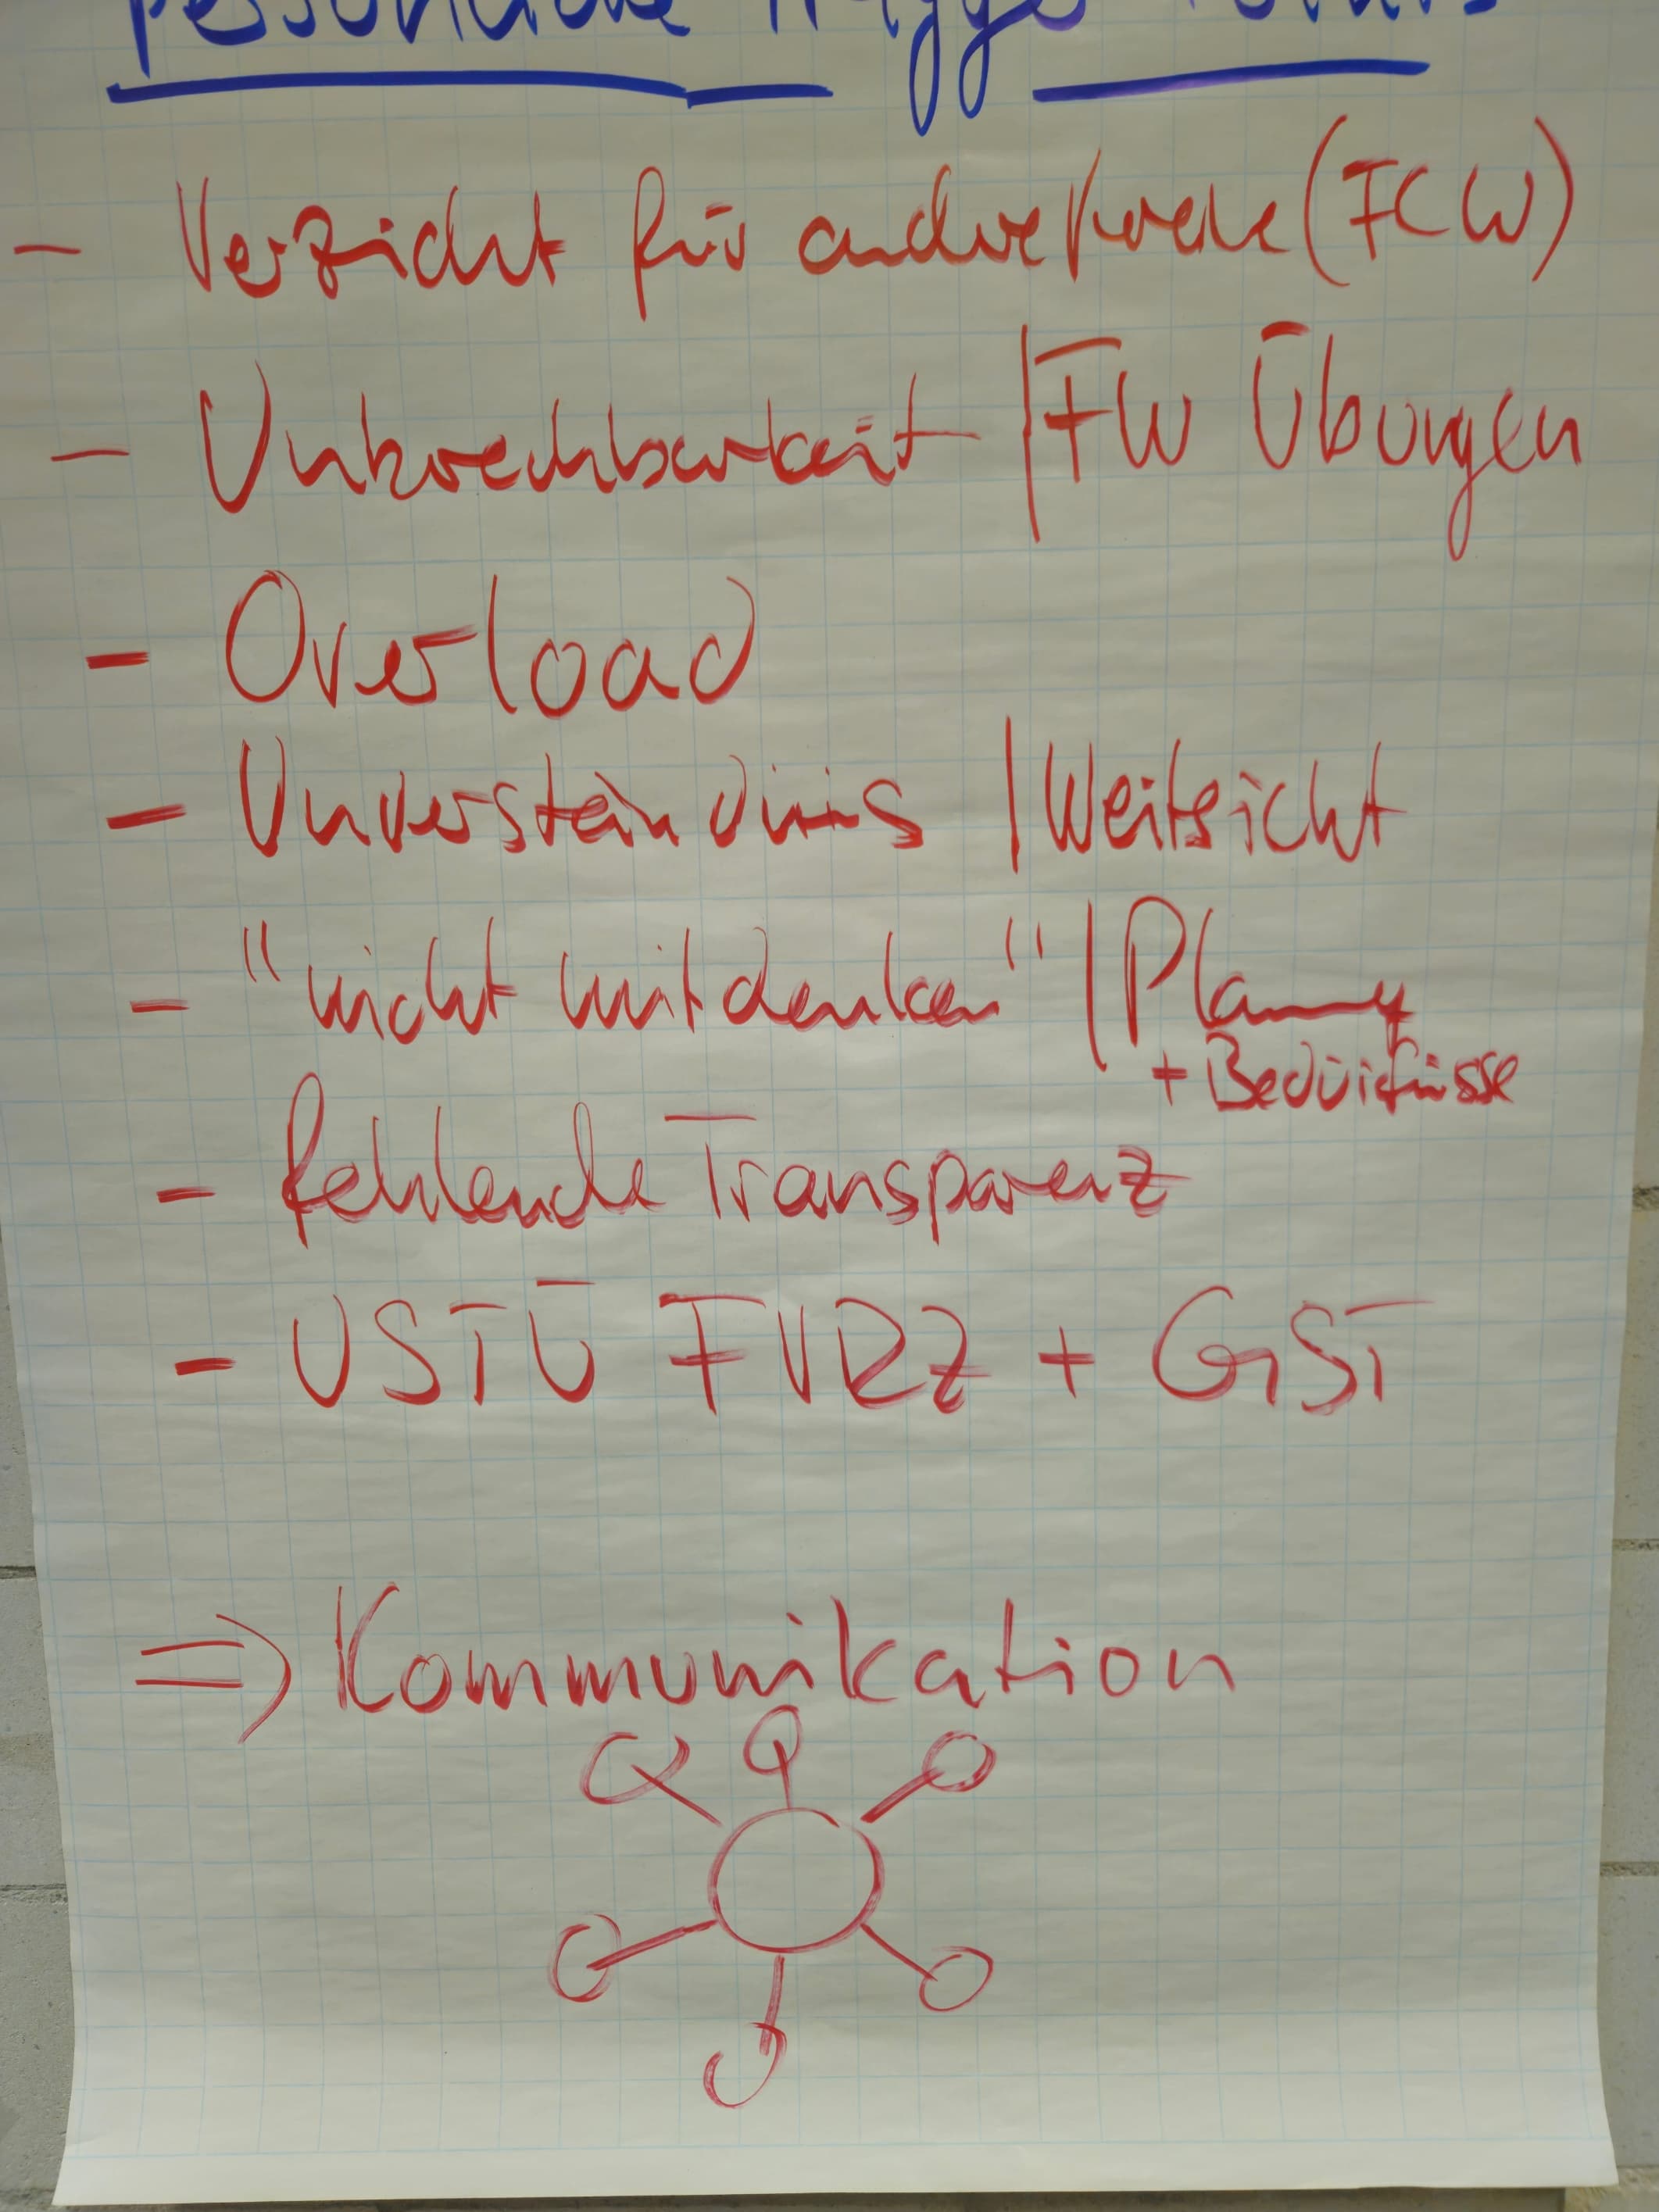 persönliche Trigger Points
- Verzicht für andere (FCW)
- Unbrechbarkeit | FW Übungen
- Overload
- Unverständnis | Weitsicht
- "nicht mitdenken" | Planung
+ Bedürfnisse
- fehlende Transparenz
- USTÜ FVRZ + GST
=> Kommunikation